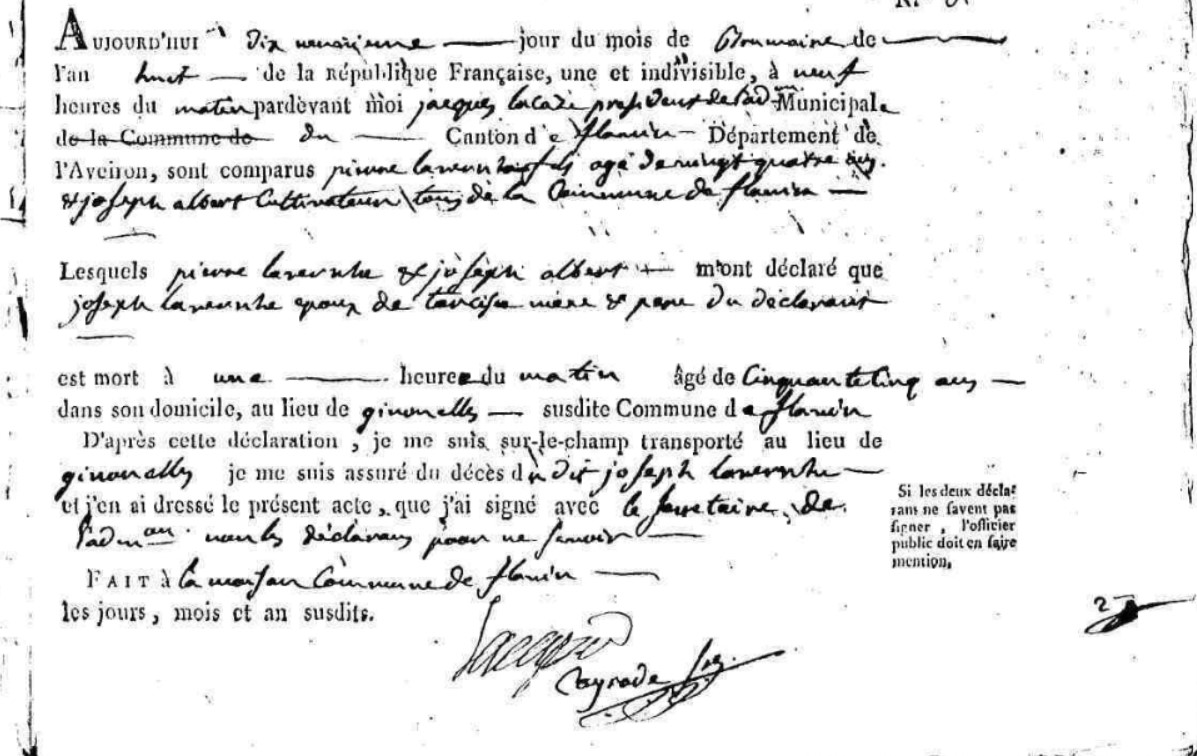 AUJOURD'HUI dix neuvieme jour du mois de Brumaire de
l'an huit de la république Française, une et indivisible, à neuf
heures du matin pardevant moi jacques lacaze president de l'ad.on Municipale
de la Commune de du Canton de flavin Département de
l'Aveiron, sont comparus pierre lavernhe fils agé de vingt quatre ans
& joseph albert Cultivateur tous de la Commune de flavin
Lesquels pierre lavernhe & joseph albert m'ont déclaré que
joseph lavernhe epoux de mere & pere du déclarant
est mort à une heure du matin âgé de Cinquante Cinq ans
dans son domicile, au lieu de ginoualles susdite Commune de flavin
D'après cette déclaration, je me suis sur-le-champ transporté au lieu de
ginoualles je me suis assuré du décès du dit joseph lavernhe
et j'en ai dressé le présent acte, que j'ai signé avec le secretaire de
l'adm.on non les déclarans pour ne savoir
FAIT à la maison Commune de flavin
les jours, mois et an susdits.
Si les deux décla-
rans ne savent pas
signer, l'officier
public doit en faire
mention.
2